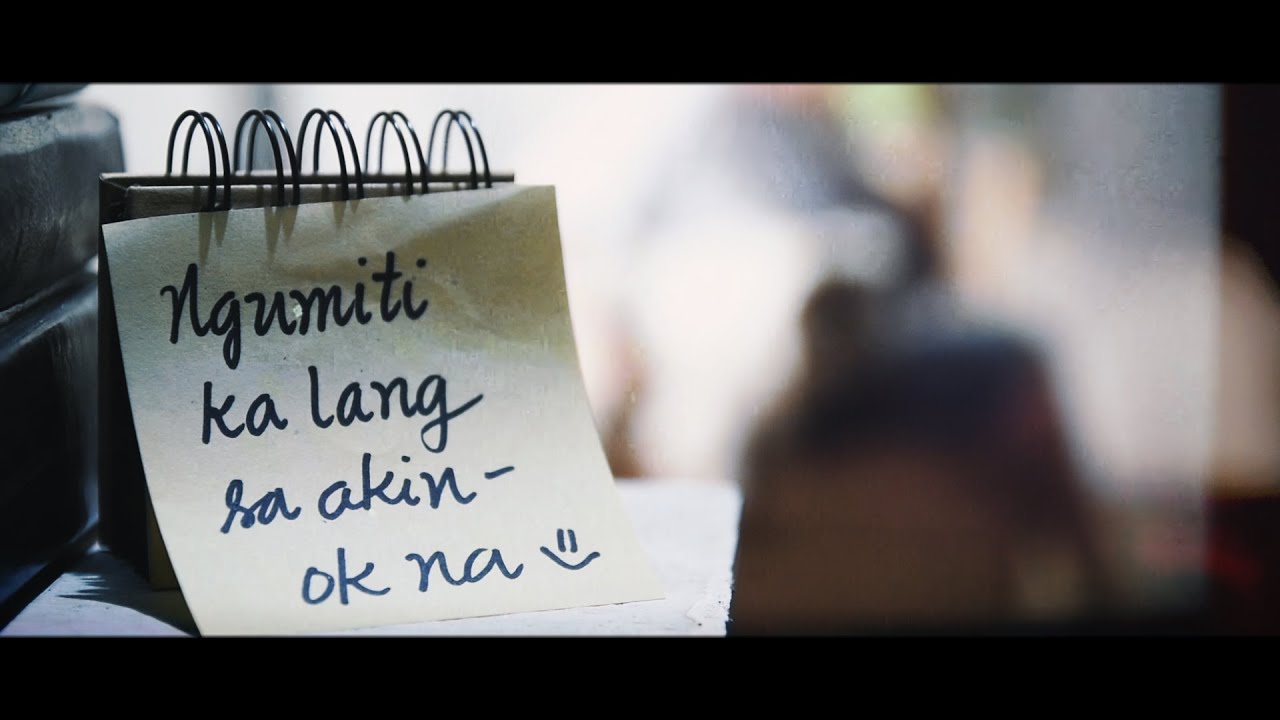 Ngumiti
ka lang
sa akin -
ok na